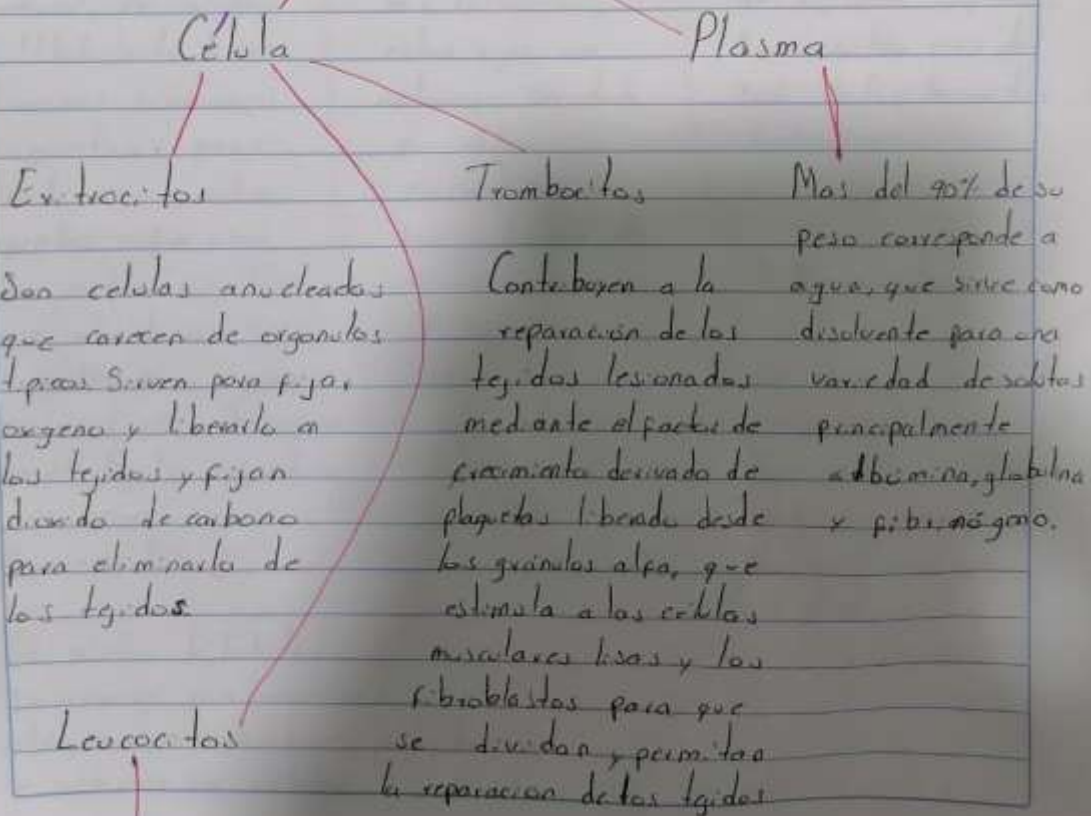 Célula
Plasma
Eritrocitos
Son celulas anucleadas
que carecen de organulos
tipicos Sirven para fijar
oxigeno y liberarlo en
los tejidos y fijan
dioxido de carbono
para eliminarlo de
los tejidos.
Leucocitos
Trombocitos
Contribuyen a la
reparación de los
tejidos lesionados
mediante el factor de
crecimiento derivado de
plaquetas liberado desde
los gránulos alfa, que
estimula a las células
musculares lisas y los
fibroblastos para que
se dividan y permitan
la reparacion de los tejidos
Mas del 90% de su
peso corresponde a
agua, que sirve como
disolvente para una
variedad de solutos
principalmente
albumina, globulina
y fibrinógeno.